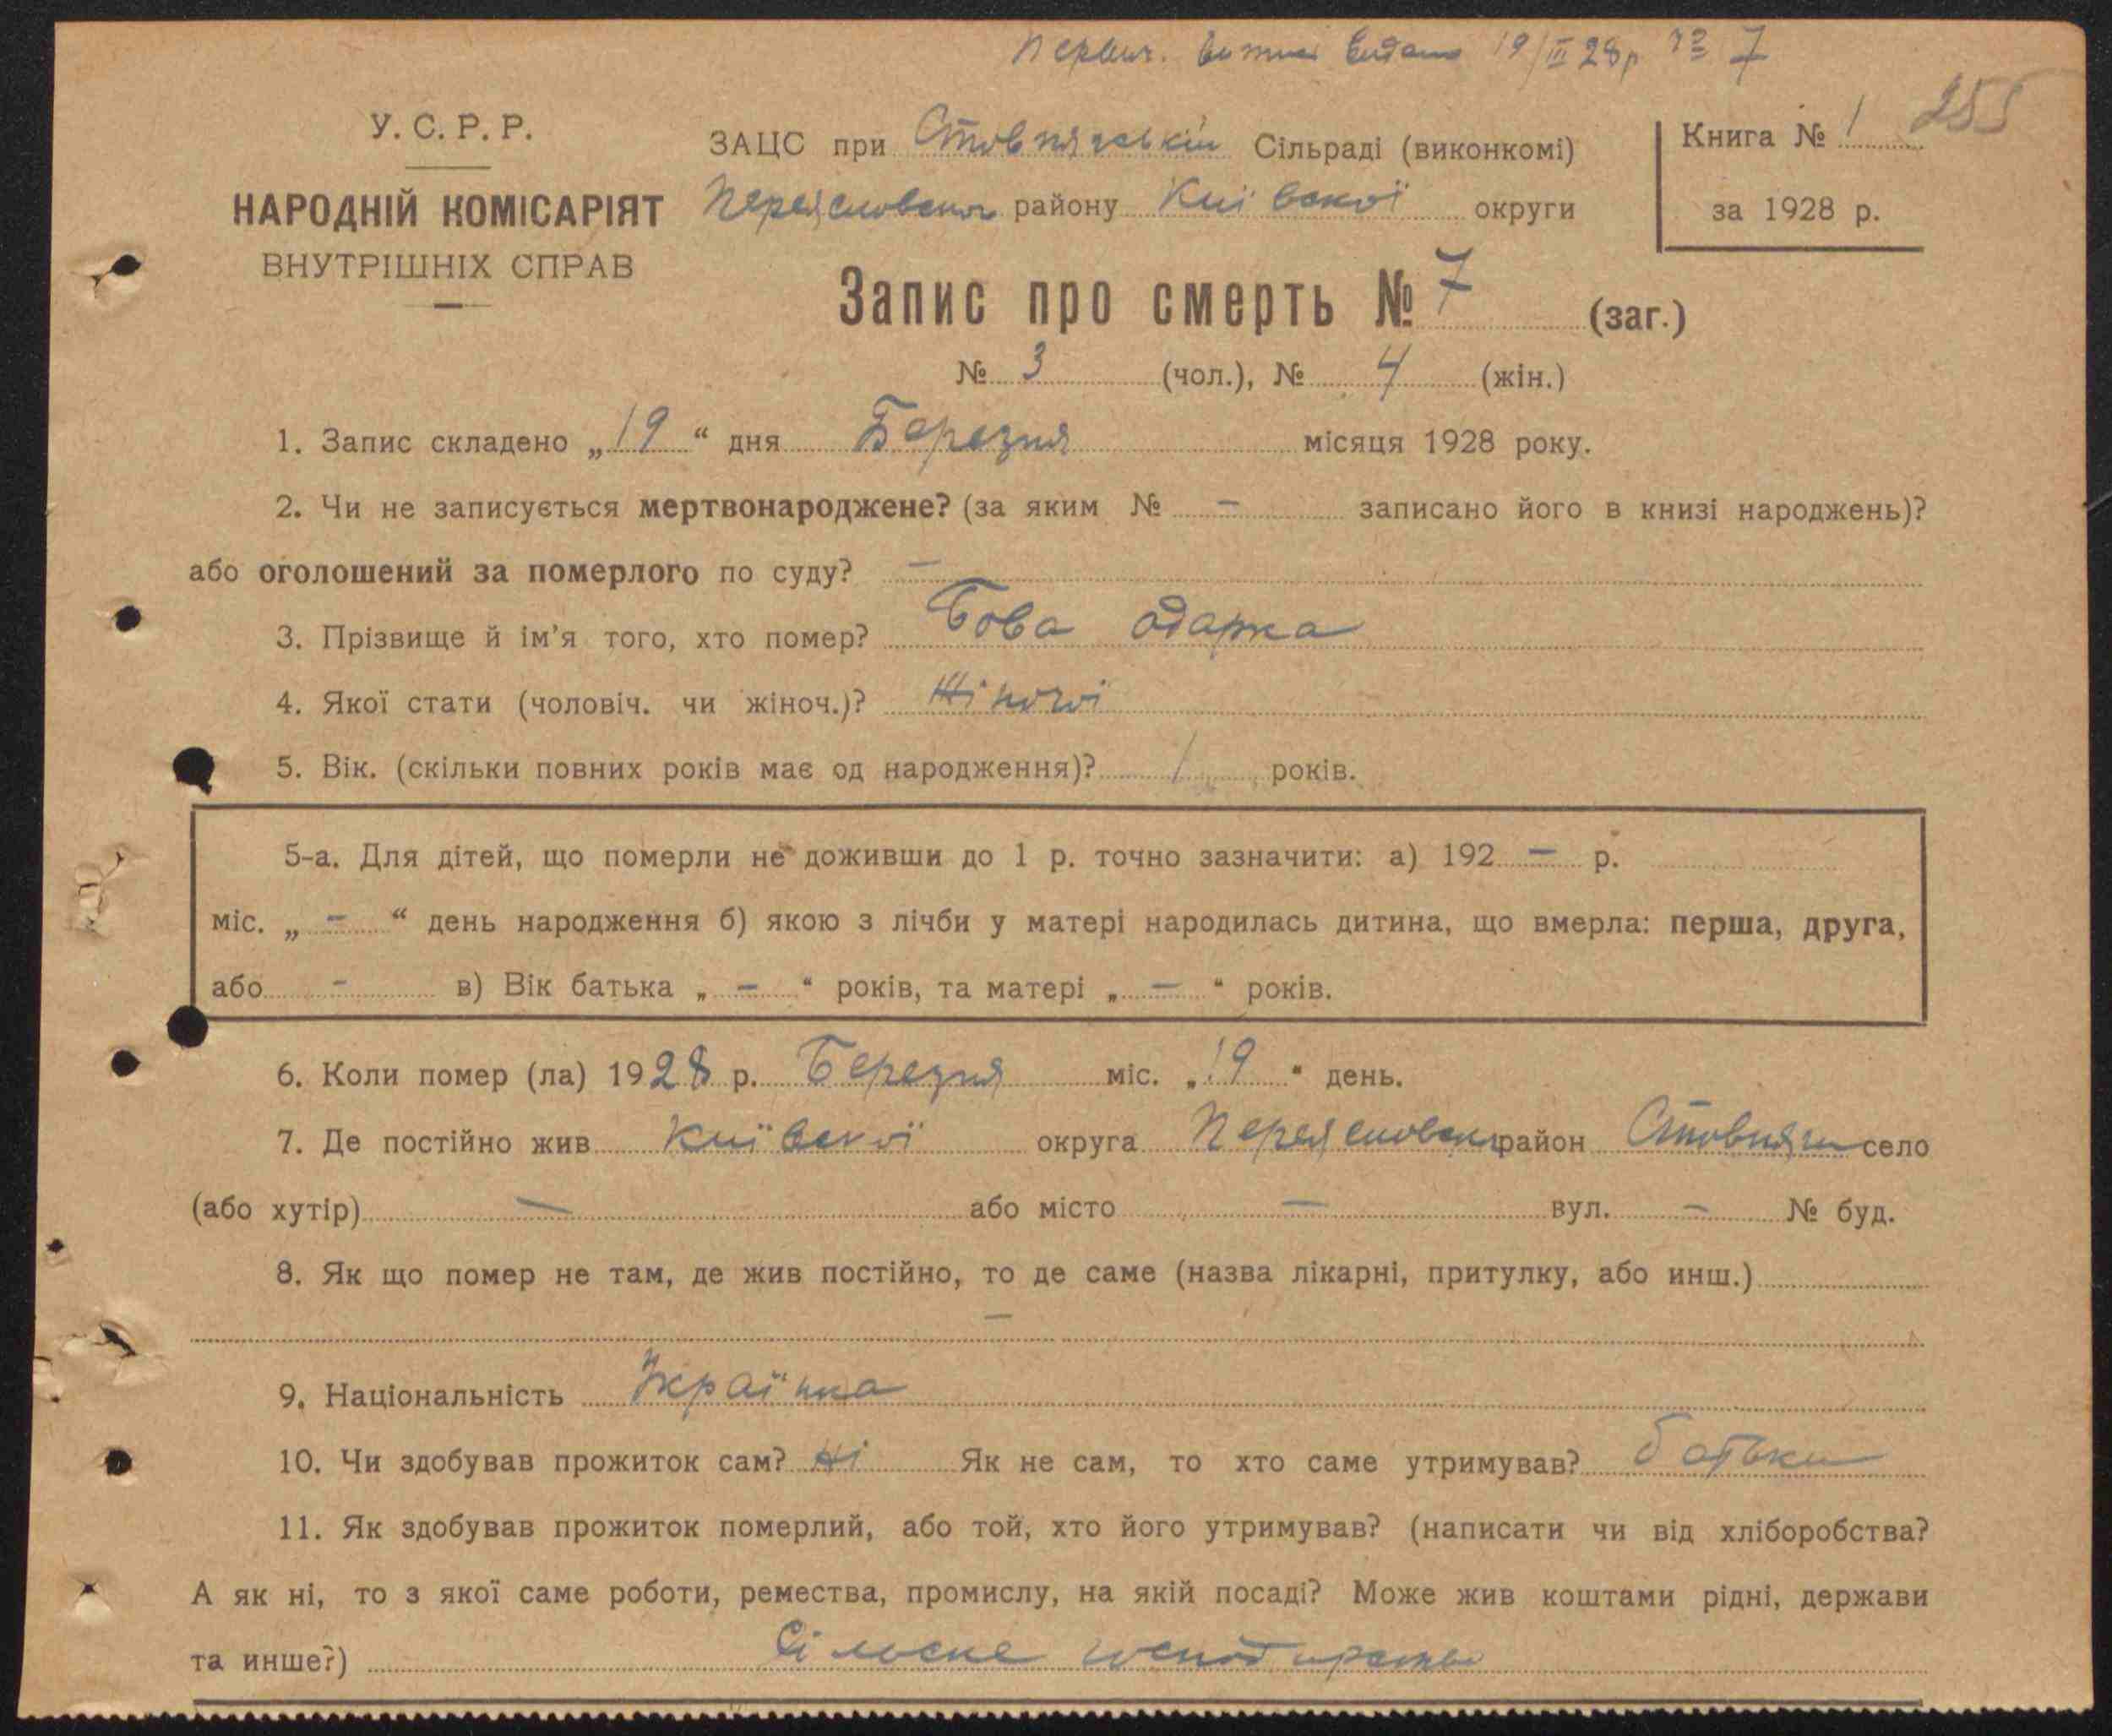 19/III 28р № 7
255
У. С. Р. Р.
НАРОДНІЙ КОМІСАРІЯТ
ВНУТРІШНІХ СПРАВ
ЗАЦС при Стовпязській Сільраді (виконкомі)
Переяславськ району Київської округи
Книга № 1
за 1928 р.
Запис про смерть № 7 (заг.)
№ 3 (чол.), № 4 (жін.)
1. Запис складено „19“ дня Березня місяця 1928 року.
2. Чи не записується мертвонароджене? (за яким № – записано його в книзі народжень)?
або оголошений за померлого по суду? –
3. Прізвище й ім’я того, хто помер? Бова Одарка
4. Якої стати (чоловіч. чи жіноч.)? Жіночої
5. Вік. (скільки повних років має од народження)? 1 років.
5-а. Для дітей, що померли не доживши до 1 р. точно зазначити: а) 192 – р.
міс. „ – “ день народження б) якою з лічби у матері народилась дитина, що вмерла: перша, друга,
або – в) Вік батька „ – “ років, та матері „ – “ років.
6. Коли помер (ла) 1928 р. Березня міс. „19“ день.
7. Де постійно жив Київської округа Переяславськ район Стовпяги село
(або хутір) – або місто – вул. – № буд.
8. Як що помер не там, де жив постійно, то де саме (назва лікарні, притулку, або инш.)
–
9. Національність Українка
10. Чи здобував прожиток сам? Ні Як не сам, то хто саме утримував? батьки
11. Як здобував прожиток померлий, або той, хто його утримував? (написати чи від хліборобства?
А як ні, то з якої саме роботи, ремества, промислу, на якій посаді? Може жив коштами рідні, держави
та инше?) Сільске господарство